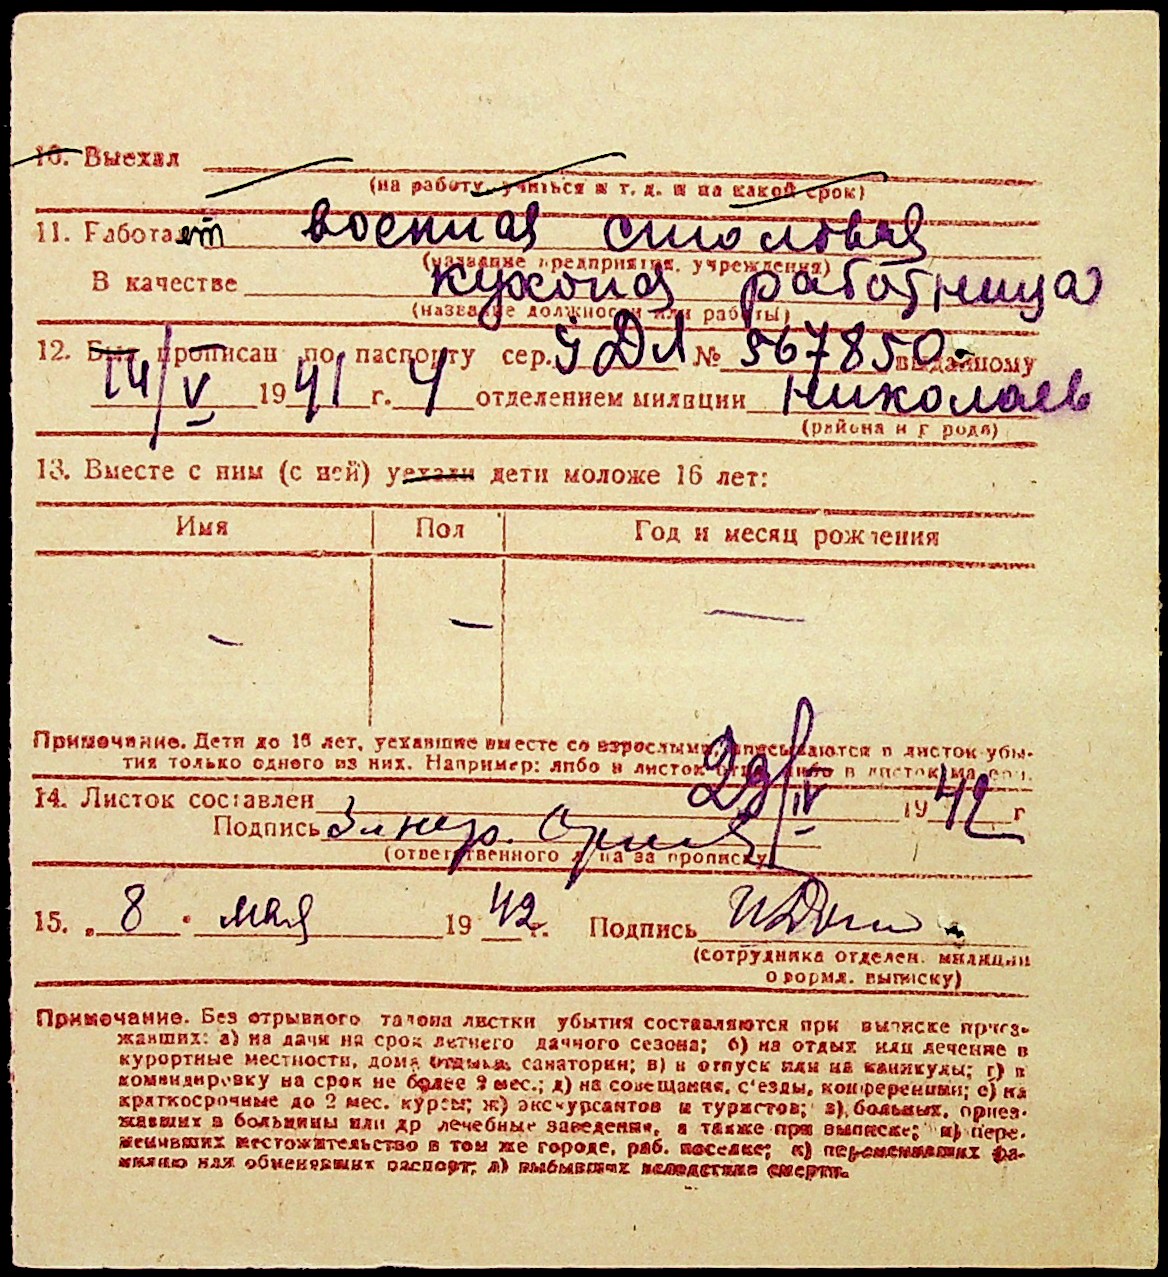 10. Выехал
(на работу, учиться и т. д. и на какой срок)
11. Работает военная столовая
(название предприятия, учреждения)
В качестве кухоная работница
(название должности или работы)
12. Был прописан по паспорту сер. УДЛ № 567850 выданному
14/V 1941 г. 4 отделением милиции Николаев
(района и г рода)
13. Вместе с ним (с ней) уехали дети моложе 16 лет:
Имя Пол Год и месяц рождения
— — —
Примечание. Дети до 16 лет, уехавшие вместе со взрослыми, вписываются в листок убы-
тия только одного из них. Например: либо в листок отца, либо в листок матери.
14. Листок составлен 29/IV 1942 г
Подпись
(ответственного лица за прописку)
15. „ 8 " мая 1942 г. Подпись
(сотрудника отделен. милиции
оформл. выписку)
Примечание. Без отрывного талона листки убытия составляются при выписке приез-
жавших: а) на дачи на срок летнего дачного сезона; б) на отдых или лечение в
курортные местности, дома отдыха, санатории; в) в отпуск или на каникулы; г) в
командировку на срок не более 2 мес.; д) на совещания, с'езды, конференции; е) на
краткосрочные до 2 мес. курсы; ж) экскурсантов и туристов; з) больных, приез-
жавших в больницы или др лечебные заведения, а также при выписке; и) пере-
менивших местожительство в том же городе, раб. поселке; к) переменивших фа-
милию или обменявших паспорт; л) выбывших вследствие смерти.